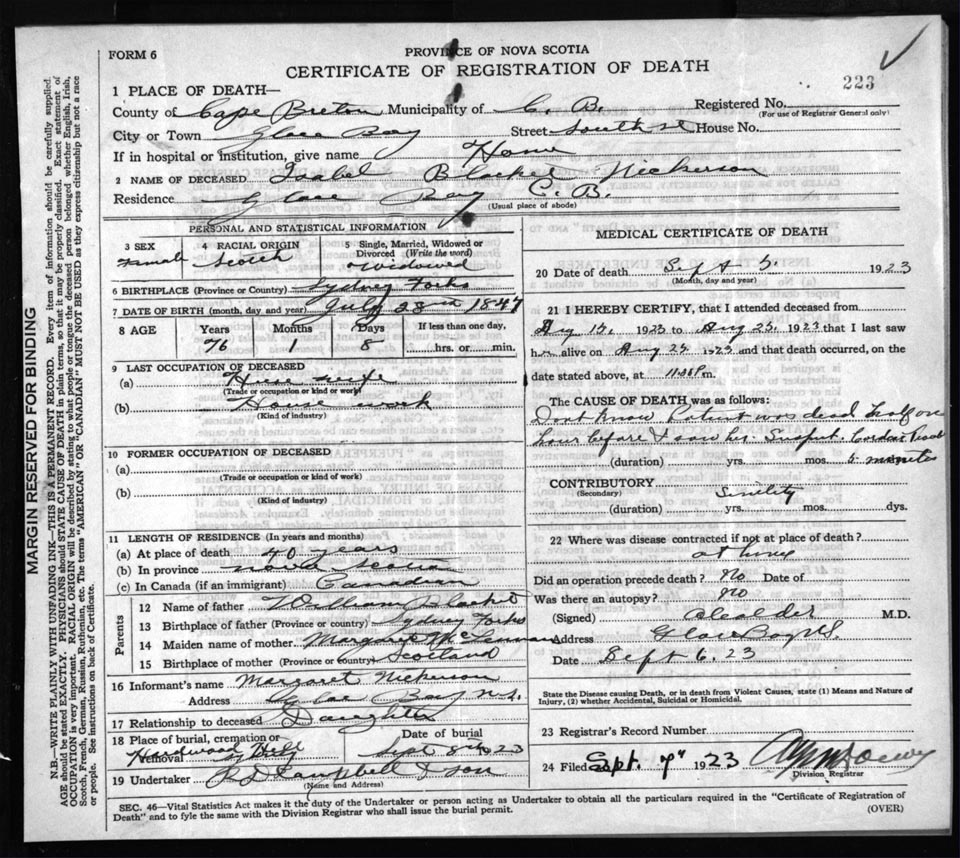 FORM 6
PROVINCE OF NOVA SCOTIA
CERTIFICATE OF REGISTRATION OF DEATH
223
1 PLACE OF DEATH—
County of Cape Breton Municipality of C. B. Registered No.
(For use of Registrar General only)
City or Town Glace Bay Street South st House No.
If in hospital or institution, give name Home
2 NAME OF DECEASED Isabel Blacket Nickerson
Residence Glace Bay C. B.
(Usual place of abode)
PERSONAL AND STATISTICAL INFORMATION
3 SEX
Female
4 RACIAL ORIGIN
Scotch
5 Single, Married, Widowed or
Divorced (Write the word)
Widowed
6 BIRTHPLACE (Province or Country) Sydney Forks
7 DATE OF BIRTH (month, day and year) July 28 1847
8 AGE
Years Months Days If less than one day,
76 1 8 hrs. or min.
9 LAST OCCUPATION OF DECEASED
(a) House wife
(Trade or occupation or kind or work)
(b) House work
(Kind of industry)
10 FORMER OCCUPATION OF DECEASED
(a)
(Trade or occupation or kind of work)
(b)
(Kind of industry)
11 LENGTH OF RESIDENCE (In years and months)
(a) At place of death 40 years
(b) In province Nova Scotia
(c) In Canada (if an immigrant) Canadian
Parents
12 Name of father William Blacket
13 Birthplace of father (Province or country) Sydney Forks
14 Maiden name of mother Margaret McLennan
15 Birthplace of mother (Province or country) Scotland
16 Informant's name Margaret Nickerson
Address Glace Bay N.S.
17 Relationship to deceased Daughter
18 Place of burial, cremation or Date of burial
Removal Hardwood Hill Sept 8 1923
19 Undertaker Campbell & son
(Name and Address)
MEDICAL CERTIFICATE OF DEATH
20 Date of death Sept 5. 1923
(Month, day and year)
21 I HEREBY CERTIFY, that I attended deceased from
Aug 15, 1923 to Aug 25, 1923 that I last saw
h alive on Aug 25 1923 and that death occurred, on the
date stated above, at m.
The CAUSE OF DEATH was as follows:
Dont Know Patient was dead half an
hour before I saw her. Suspect.
(duration) yrs. mos. 5 minutes
CONTRIBUTORY Senility
(Secondary)
(duration) yrs. mos. dys.
22 Where was disease contracted if not at place of death?
at home
Did an operation precede death? No Date of
Was there an autopsy? No
(Signed) M.D.
Address Glace Bay N.S.
Date Sept 6. 23
State the Disease causing Death, or in death from Violent Causes, state (1) Means and Nature of
Injury, (2) whether Accidental, Suicidal or Homicidal.
23 Registrar's Record Number
24 Filed Sept. 7" 1923
Division Registrar
SEC. 46—Vital Statistics Act makes it the duty of the Undertaker or person acting as Undertaker to obtain all the particulars required in the "Certificate of Registration of
Death" and to fyle the same with the Division Registrar who shall issue the burial permit. (OVER)
MARGIN RESERVED FOR BINDING
N.B.—WRITE PLAINLY WITH UNFADING INK—THIS IS A PERMANENT RECORD. Every item of information should be carefully supplied.
AGE should be stated EXACTLY. PHYSICIANS should STATE CAUSE OF DEATH in plain terms, so that it may be properly classified. Exact statement of
OCCUPATION is very important. RACIAL ORIGIN will be described by stating to what people or tongue the deceased person belonged whether English, Irish,
Scotch, French, German, Russian, Ruthenian, etc. The terms "AMERICAN" OR "CANADIAN" MUST NOT BE USED as they express citizenship but not a race
or people. See instructions on back of Certificate.